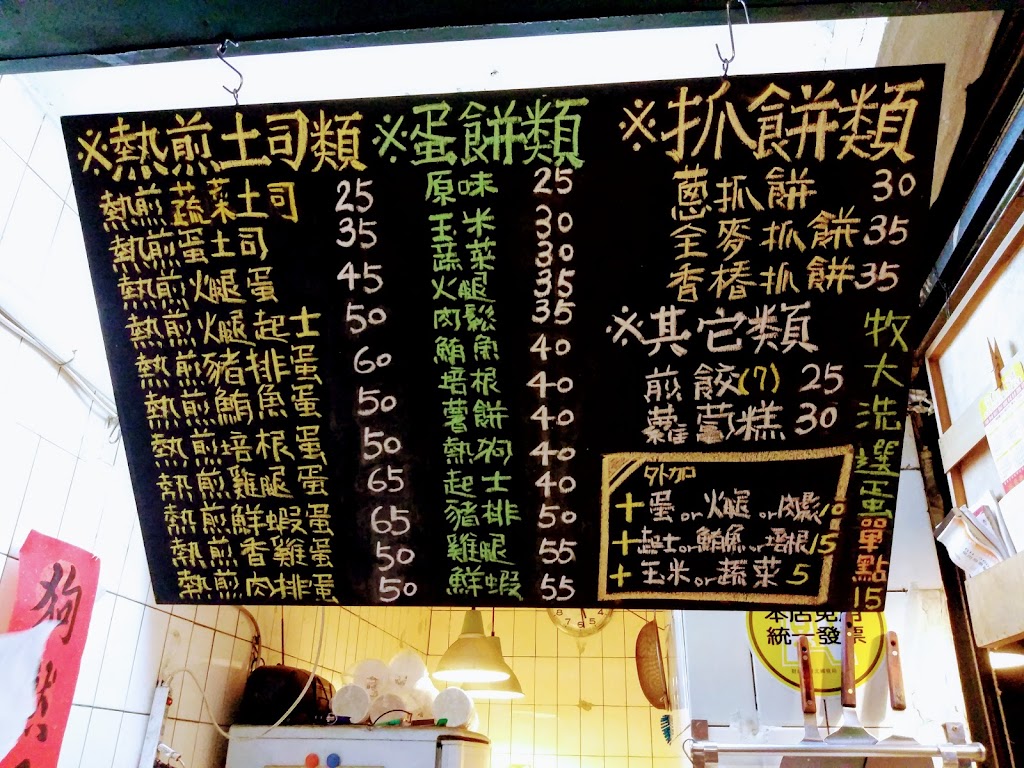 ※熱煎土司類
熱煎蔬菜土司 25
熱煎蛋土司 35
熱煎火腿蛋 45
熱煎火腿起士 50
熱煎豬排蛋 60
熱煎鮪魚蛋 50
熱煎培根蛋 50
熱煎雞腿蛋 65
熱煎鮮蝦蛋 65
熱煎香雞蛋 50
熱煎肉排蛋 50
※蛋餅類
原味 25
玉米 30
蔬菜 30
火腿 35
肉鬆 35
鮪魚 40
培根 40
薯餅 40
熱狗 40
起士 40
豬排 50
雞腿 55
鮮蝦 55
※抓餅類
蔥抓餅 30
全麥抓餅 35
香椿抓餅 35
※其它類
煎餃(7) 25
蘿蔔糕 30
外加
+蛋or火腿or肉鬆10
+起士or鮪魚or培根15
+玉米or蔬菜 5
牧大洗選蛋單點15
本店免用
統一發票
狗
8 7 6 5 4